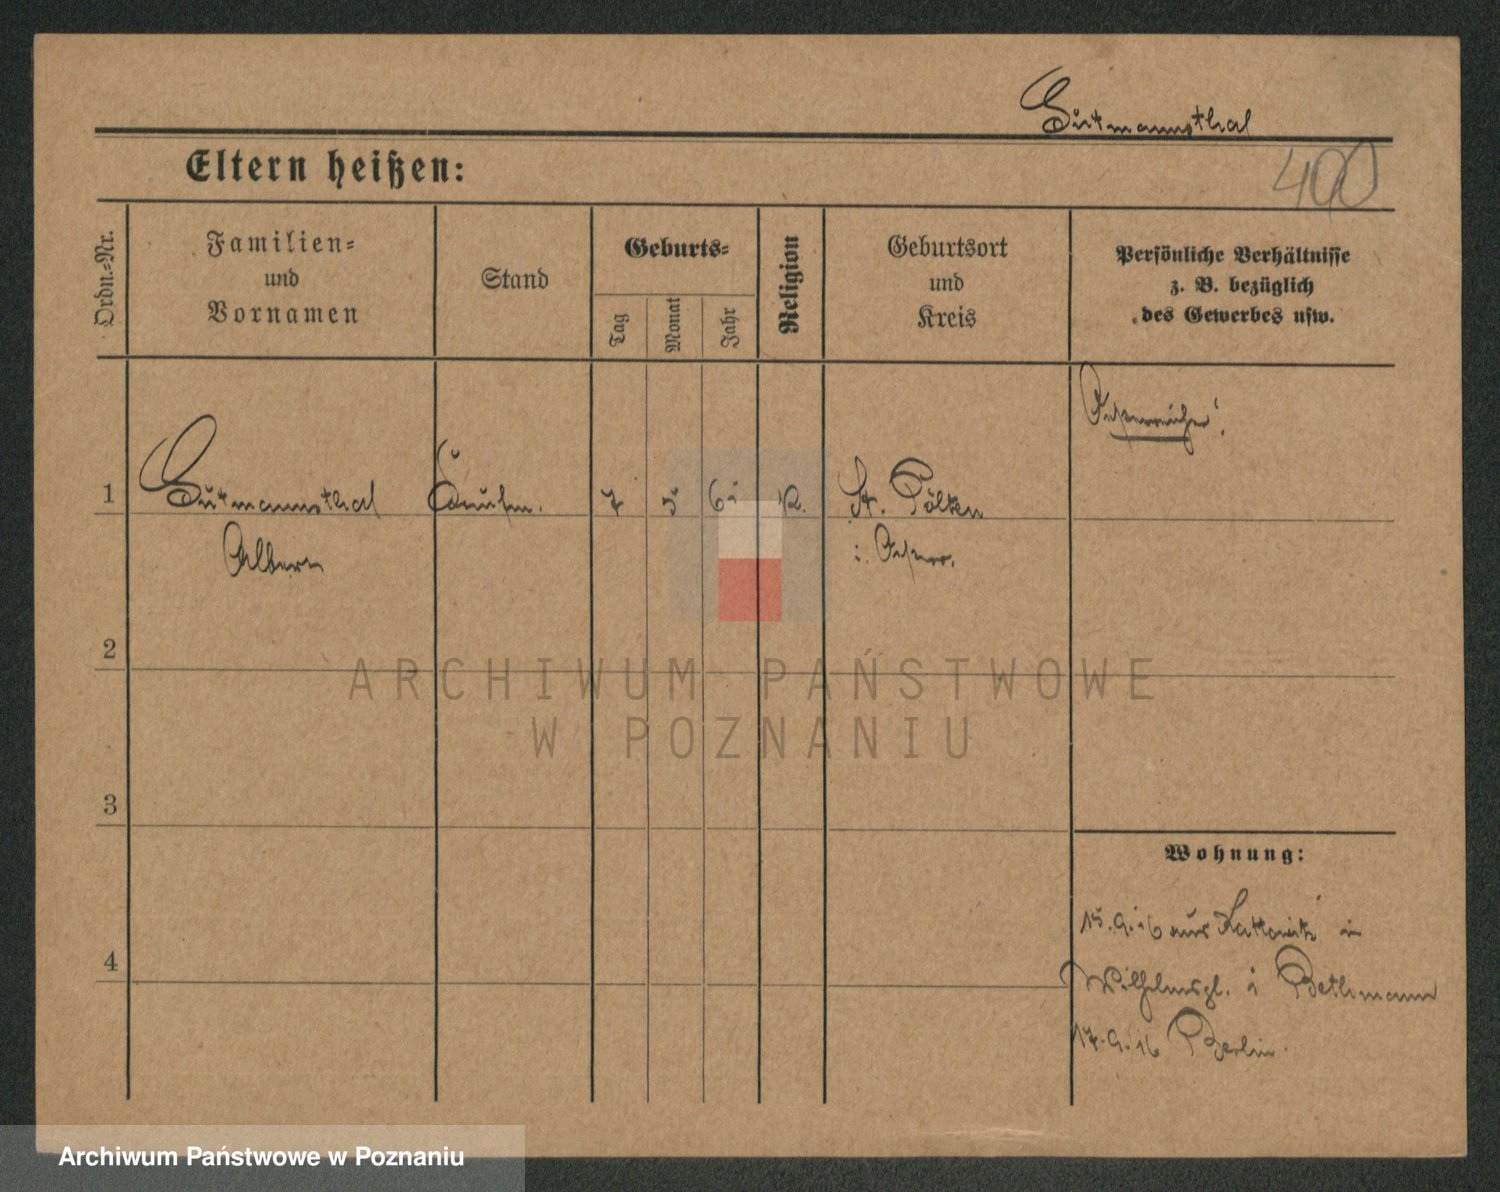 Gutmannsthal
Eltern heißen:
400
Ordn.-Nr.
Familien-
und
Vornamen
Stand
Geburts-
Tag
Monat
Jahr
Religion
Geburtsort
und
Kreis
Persönliche Verhältnisse
z. B. bezüglich
des Gewerbes usw.
Österreicher!
1
Gutmannsthal
Kaufm.
7
5.
St. Pölten
Albert
i. Österr.
2
ARCHIWUM PAŃSTWOWE
W POZNANIU
3
Wohnung:
15.9.16 aus Kattowitz in
4
Wilhelmspl. i Bethmann
17.9.16 Berlin.
Archiwum Państwowe w Poznaniu